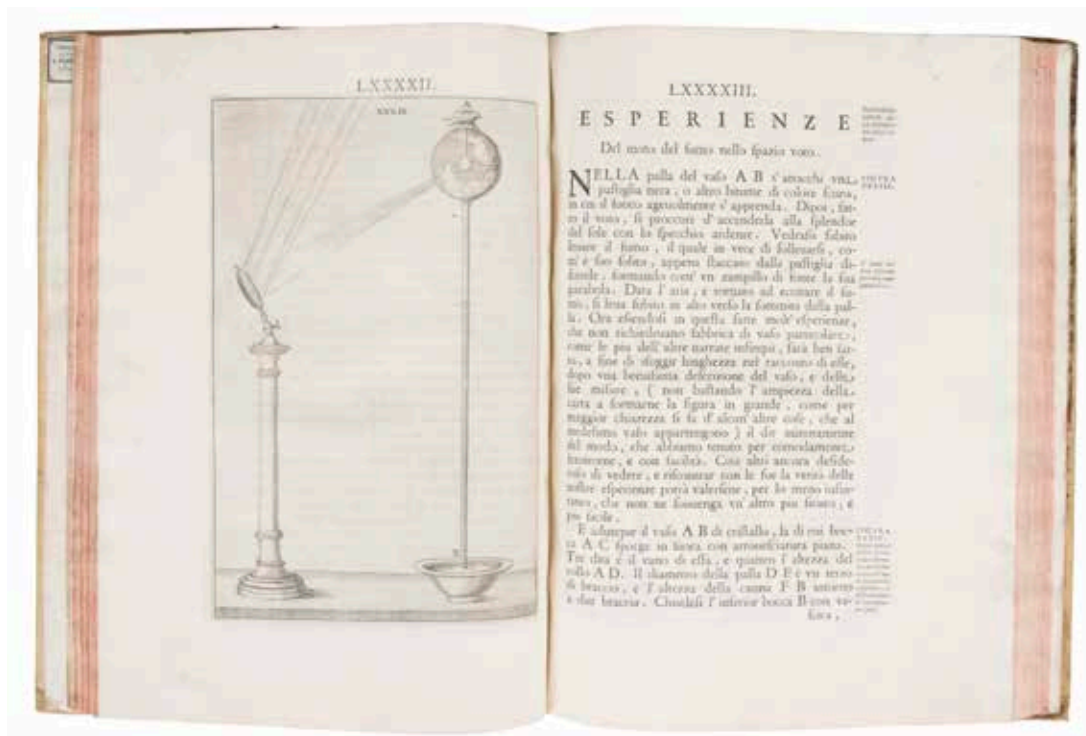 LXXXXII.
XXXIX
A
B
LXXXXIII.
ESPERIENZE
Del moto del fumo nello ſpazio voto.
NELLA palla del vaſo A B s'attacchi vna
paſtiglia nera, o altro bitume di colore ſcuro,
in cui il fuoco ageuolmente s'apprenda. Dipoi, fat-
to il voto, ſi procuri d'accenderla alla ſplendor
del ſole con lo ſpecchio ardente. Vedraſſi ſubito
leuare il fumo, il quale in vece di ſolleuarſi, co-
m'è ſuo ſolito, appena ſtaccato dalla paſtiglia di-
ſcende, formando com' vn zampillo di fonte la ſua
parabola. Data l'aria, e tornato ad eccitare il fu-
mo, ſi leua ſubito in alto verſo la ſommità della pal-
la. Ora eſſendoſi in queſta fatte molt'eſperienze,
che non richiedeuano fabbrica di vaſo particolare,
come le più dell'altre narrate infinqui, ſarà ben fat-
to, a fine di sfuggir lunghezza nel racconto di eſſe,
dopo vna breuiſſima deſcrizione del vaſo, e delle
ſue miſure, ( non baſtando l'ampiezza della
carta a formarne la figura in grande, come per
maggior chiarezza ſi fa d'alcun'altre coſe, che al
medeſimo vaſo appartengono ) il dir interamente
del modo, che abbiamo tenuto per comodamente
e con facilità. Così altri ancora deſide-
roſo di vedere, e riſcontrar con le ſue la verità delle
noſtre eſperienze potrà valerſene, per lo meno infin-
tanto, che non ne ſouuenga vn'altro più ſicuro, e
più facile.
E adunque il vaſo A B di criſtallo, la di cui boc-
ca A C ſporga in fuora con arroueſciatura piana.
Tre dita è il vano di eſſa, e quattro l'altezza del
collo A D. Il diametro della palla D E è vn terzo
di braccio, e l'altezza della canna F B intorno
a due braccia. Chiudeſi l'inferior bocca B con ve-
ſcica,